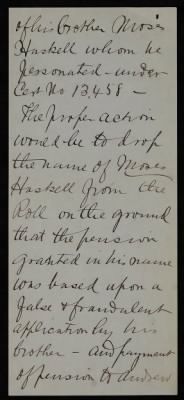 of his brother Moses
Haskell whom he
personated - under
Cert No 13,458 -
The proper action
would be to drop
the name of Moses
Haskell from the
Roll on the ground
that the pension
granted in his name
was based upon a
false & fraudulent
application by his
brother - and payment
of pension to Andrew